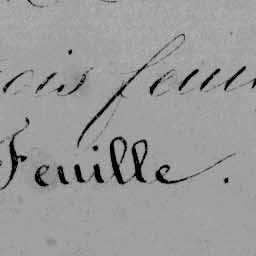 ois feui
Feuille.